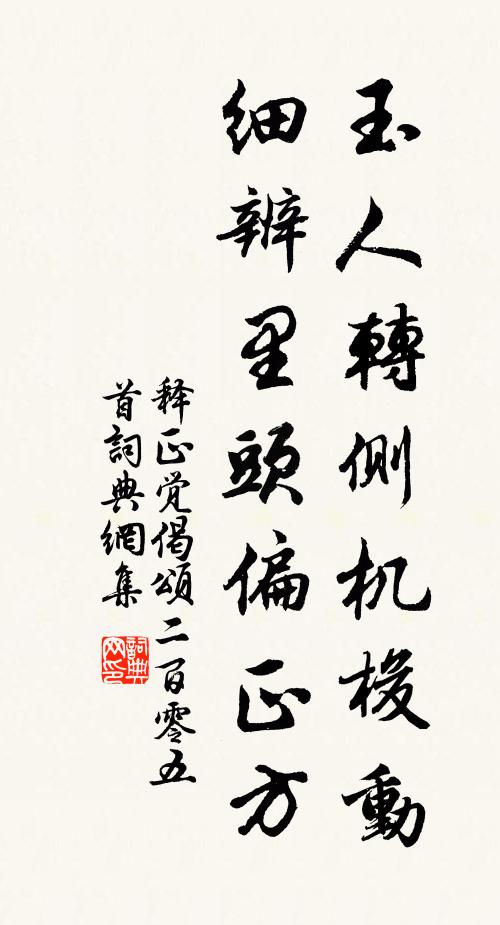 玉人轉側机梭動
细辨里頭偏正方
释正觉偈頌二百零五
首詞典網集
詞典
网印